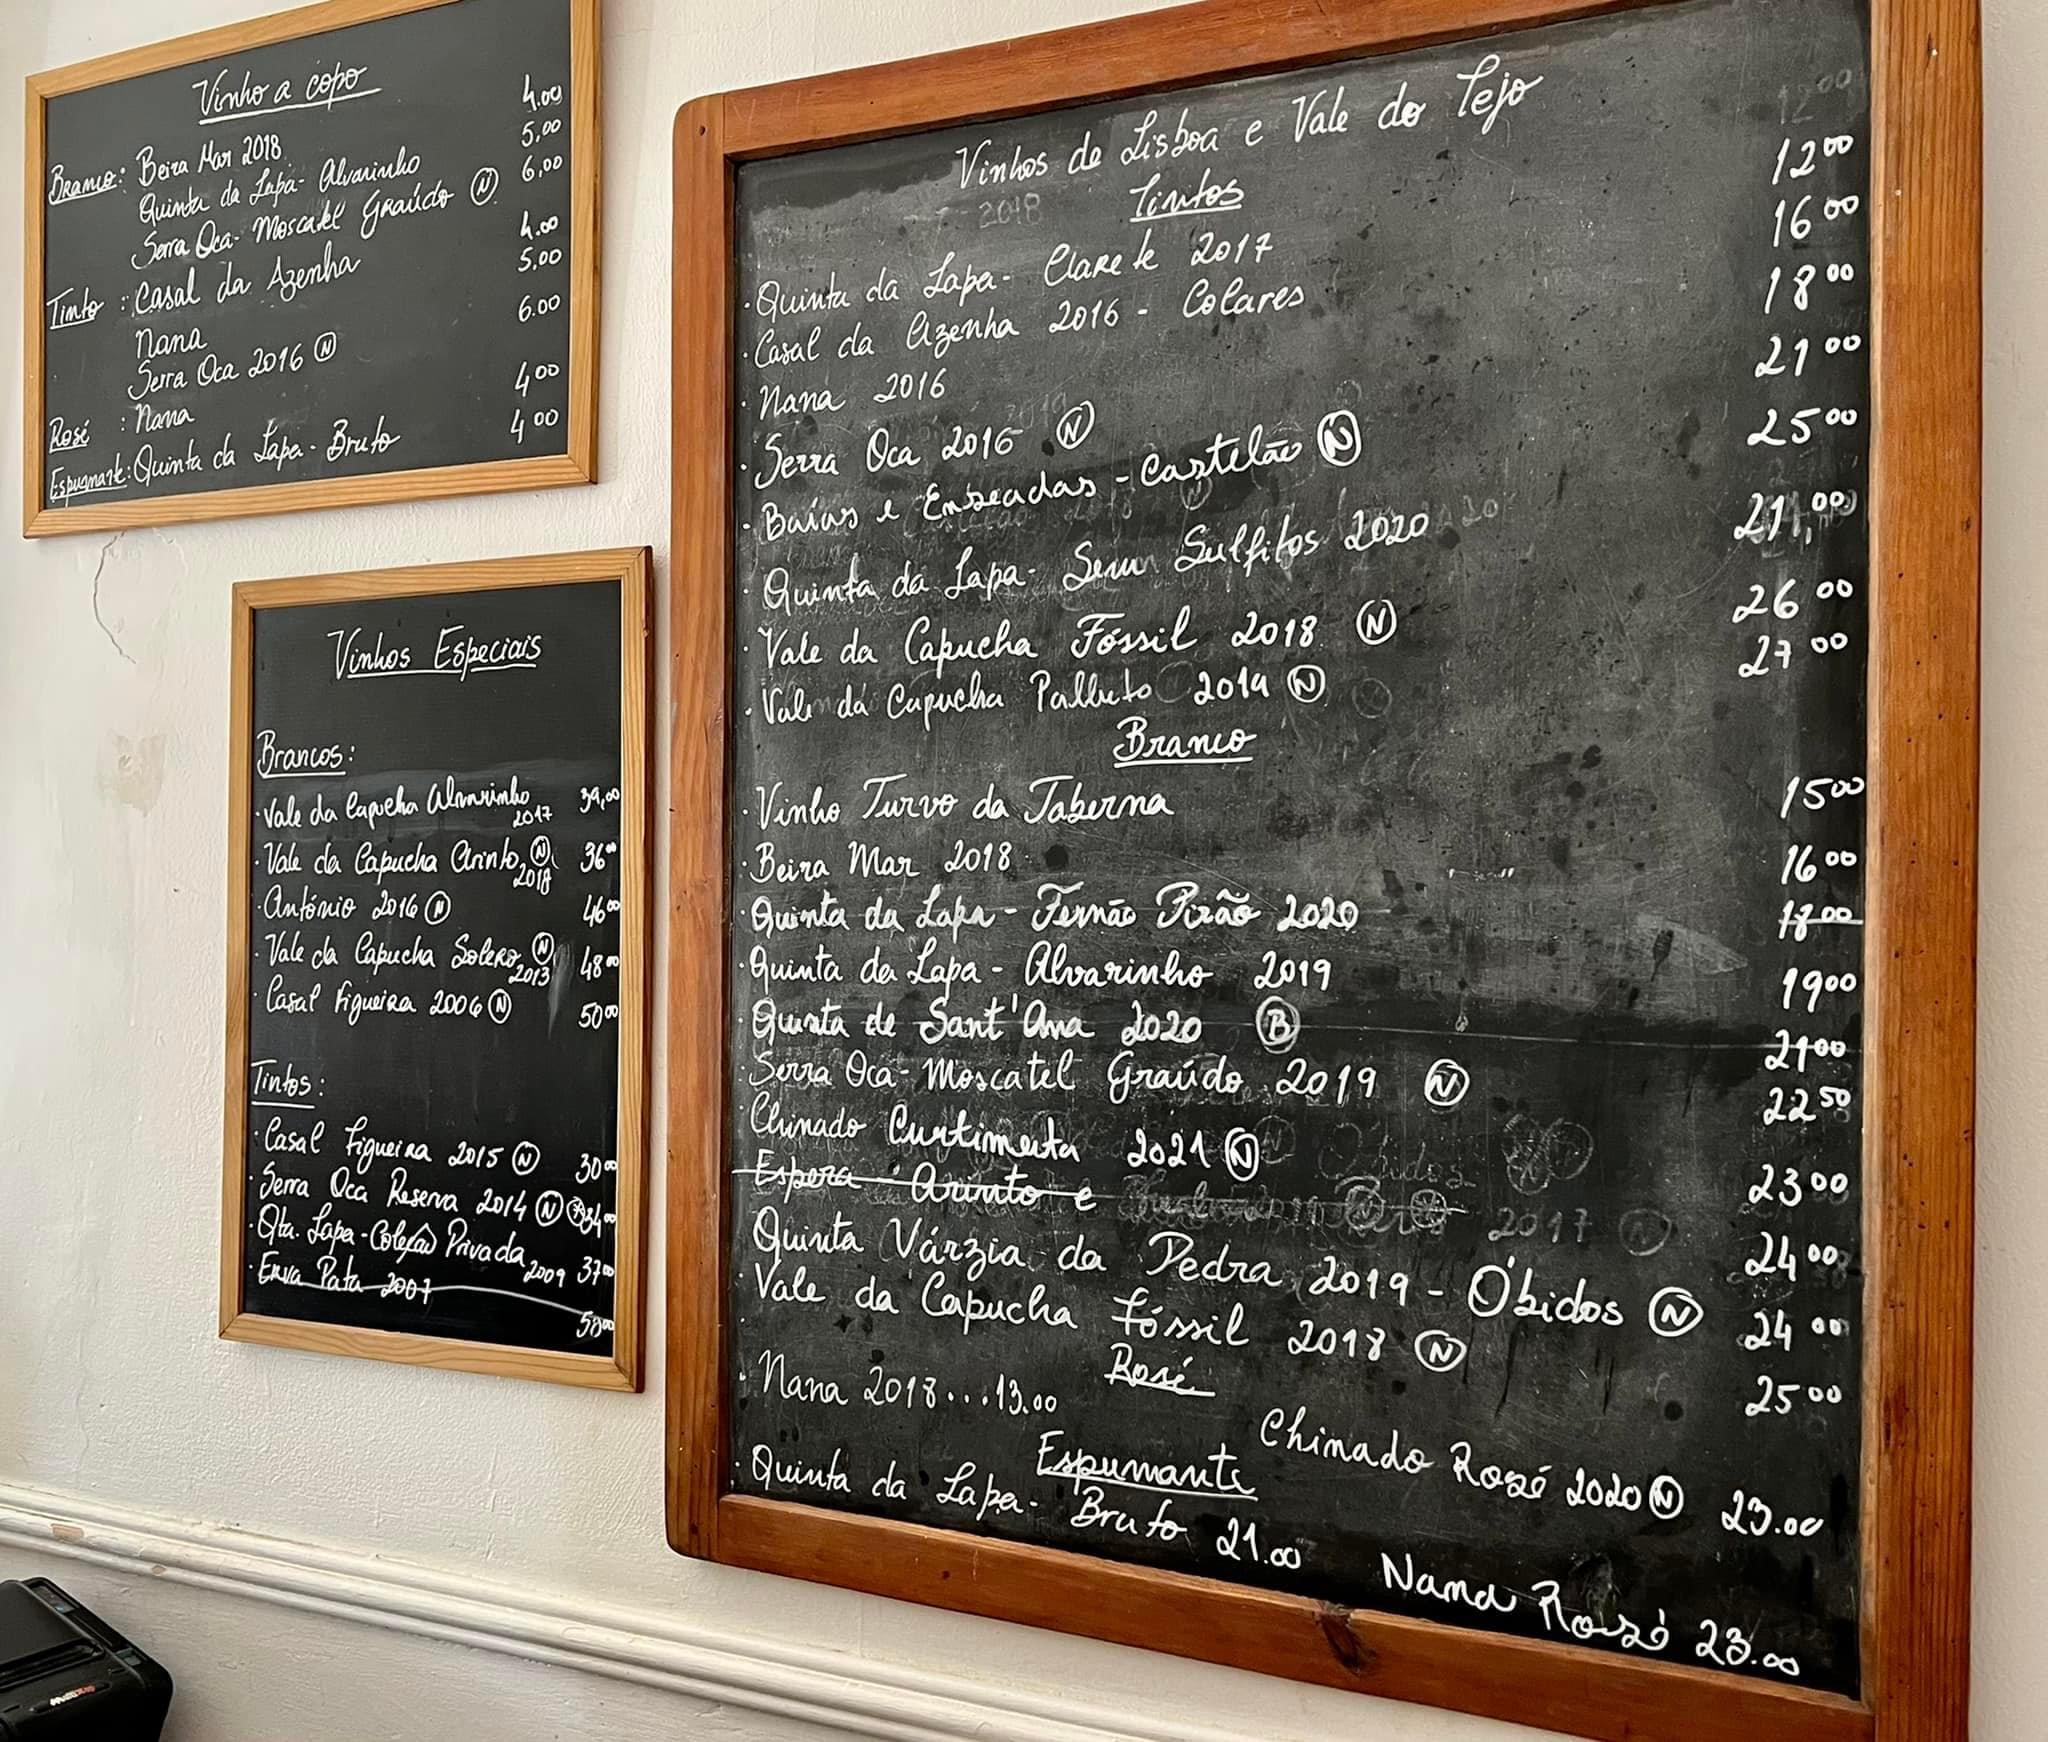 Vinho a copo
Branco: Beira Mar 2018 4.00
Quinta da Lapa- Alvarinho 5,00
Serra Oca- Moscatel Graúdo Ⓝ 6,00
Tinto : Casal da Azenha 4.00
Nana 5,00
Serra Oca 2016 Ⓝ 6.00
Rosé : Nana 4 00
Espumante: Quinta da Lapa - Bruto 4 00
Vinhos Especiais
Brancos:
· Vale da Capucha Alvarinho 2017 39,00
· Vale da Capucha Arinto Ⓝ 2018 36 00
· António 2016 Ⓝ 46 00
· Vale da Capucha Solero Ⓝ 2013 48 00
· Casal Figueira 2006 Ⓝ 50 00
Tintos:
· Casal Figueira 2015 Ⓝ 30 00
· Serra Oca Reserva 2014 Ⓝ 34 00
· Qta. Lapa - Coleção Privada 2009 37 00
· Erva Pata 2007 58 00
Vinhos de Lisboa e Vale do Tejo
Tintos
· Quinta da Lapa- Clarete 2017 12 00
· Casal da Azenha 2016 - Colares 16 00
· Nana 2016 18 00
· Serra Oca 2016 Ⓝ 21 00
· Baías e Enseadas - Castelão Ⓝ 25 00
· Quinta da Lapa- Sem Sulfitos 2020 21,00
· Vale da Capucha Fóssil 2018 Ⓝ 26 00
· Vale da Capucha Palhete 2019 Ⓝ 27 00
Branco
· Vinho Turvo da Taberna 15 00
· Beira Mar 2018 16 00
· Quinta da Lapa - Fernão Pirão 2020 18 00
· Quinta da Lapa - Alvarinho 2019 19 00
· Quinta de Sant'Ana 2020 Ⓑ 21 00
· Serra Oca- Moscatel Graúdo 2019 Ⓝ 22 50
· Chinado Curtimenta 2021 Ⓝ 23 00
Espera - Arinto e 2017 Ⓝ 24 00
· Quinta Várzia da Pedra 2019 - Óbidos Ⓝ 24 00
· Vale da Capucha Fóssil 2018 Ⓝ 25 00
Rosé
· Nana 2018...13.00
Chinado Rosé 2020 Ⓝ 23.00
Espumante
· Quinta da Lapa- Bruto 21.00
Nana Rosé 23.00